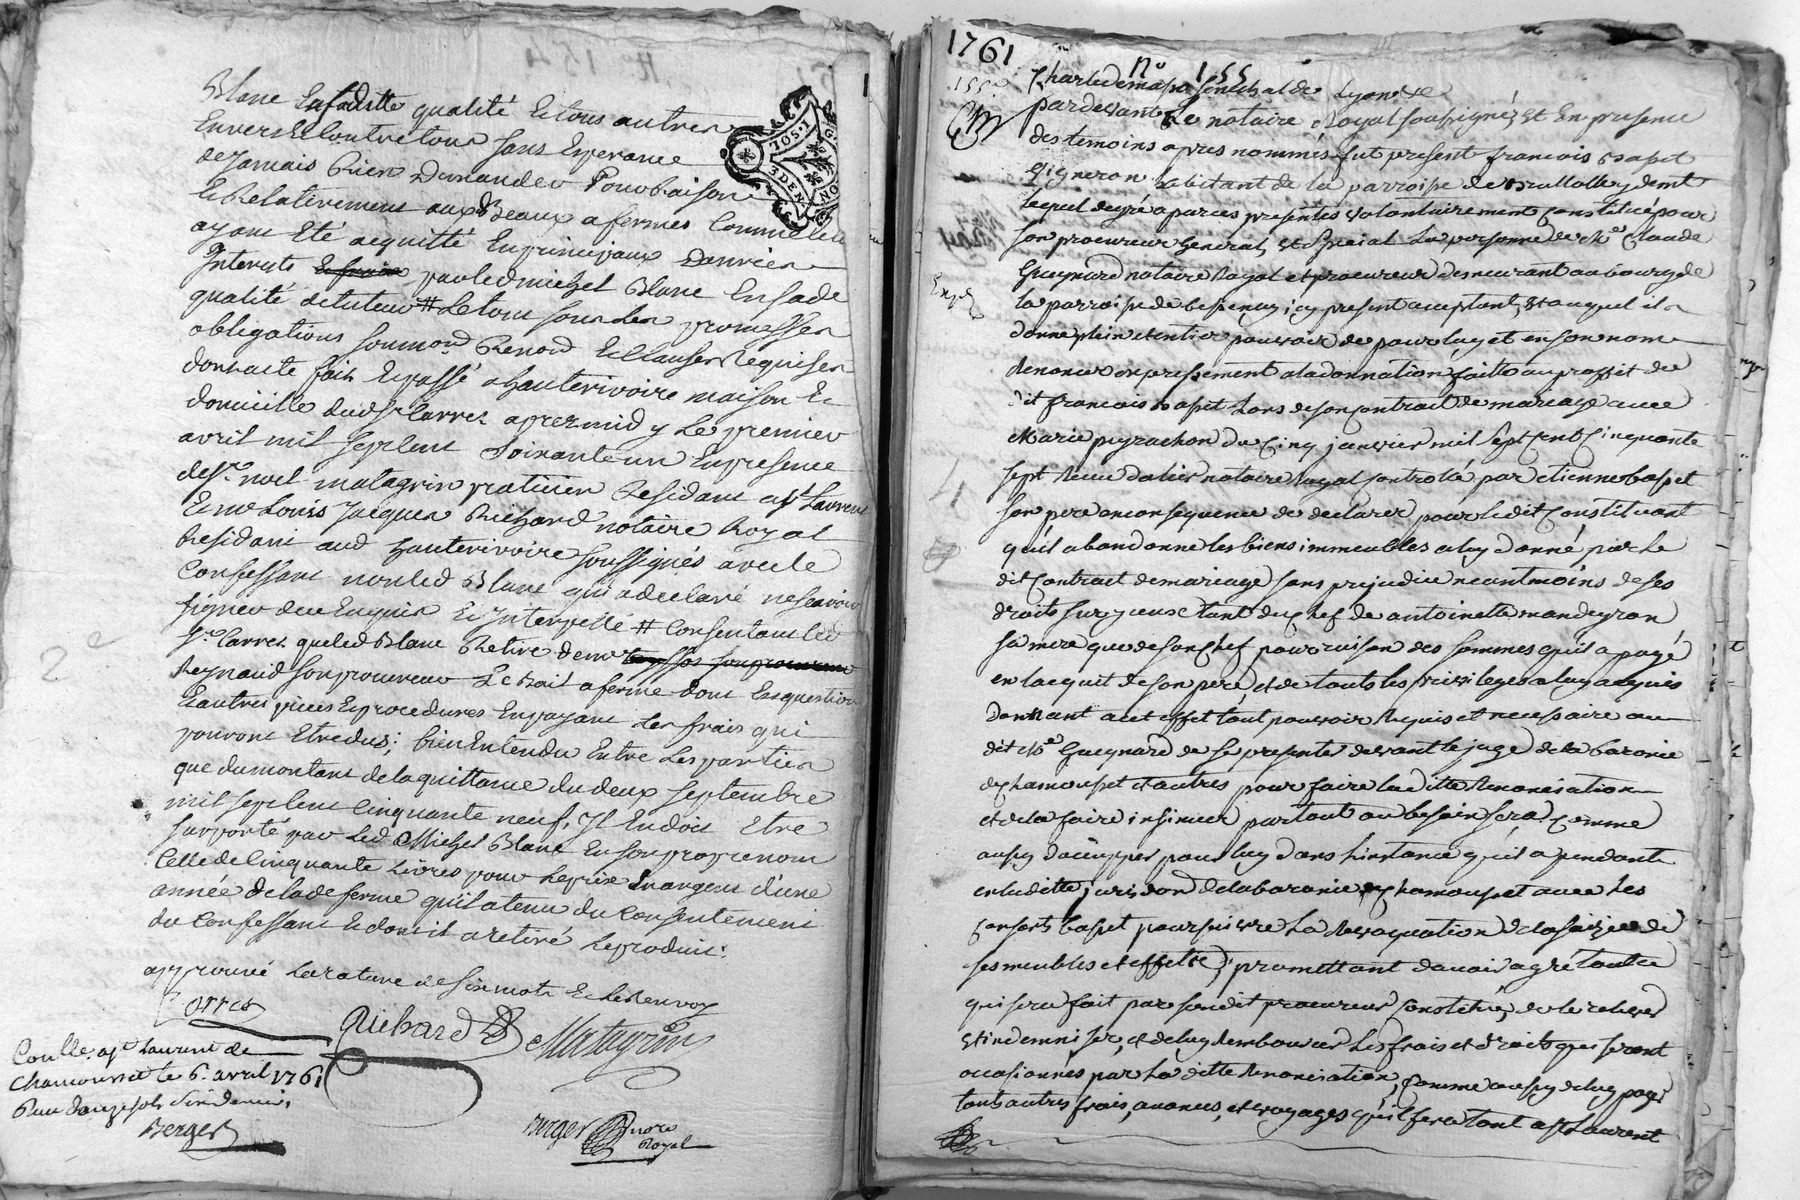 Blanc Ensadite qualité Et tous autres
Envers Et Contre tous sans Esperance
de Jamais Rien Demander Pour Raison
Et Relativement aux Beaux a fermes Comme le tout
ayant Eté acquitté En principaux Derniers
Interets Et frais par led michel Blanc En sade
qualité de tuteur # Le tout sous Les promesses
obligations soumon Renon Et Clauses Requises
dont acte fait Et passé a hauterivoire maison Et
domicille dud Sr Carret aprez midy Le premier
avril mil sept cent Soixante un En presence
de Sr noel matagrin praticien Residant a St Laurent
Et me Louis Jacques Richard notaire Royal
Residant aud hauterivoire soussignés avec le
Confessant non led Blanc qui a declaré ne scavoir
signer de ce Enquis Et Interpellé # Consentant led
Sr Carret que led Blanc Retire de me
Reynaud son procureur Le Bail a ferme dont Est question
Et autres pieces Et procedures En payant Les frais qui
pouront Etre dus; bien Entendu Entre Les parties
que du montant de la quittance du deux septembre
mil sept cent Cinquante neuf, Il En doit Etre
suporté par led Michel Blanc En son propre nom
Celle de Cinquante Livres pour Le prix En argent d'une
année de lade ferme qu'il a tenu du Consentement
du Confessant Et dont il a retiré Le produit:
approuvé La rature de six mots Et Le Renvoy
Carret
Richard
Matagrin
Coullé a St Laurent de
Chamousset le 6. avril 1761
Reçu douze sols six deniers,
Berger
Berger nore
Royal
2e
1761
no 155
155e
Charles de masso senechal de Lyon &c
pardevant Le notaire Royal soussigné, Et En presence
des temoins apres nommés fut present francois basset
vigneron habitant de la parroisse de brullolles, dont
lequel de gré a par ces presentes volontairement Constitué pour
son procureur General, Et Special La personne de Me Claude
Gueynard notaire Royal et procureur demeurant au bourg de
la parroisse de bessenay icy present acceptant, Et auquel il
donne plein et entier pouvoir de pour luy et en son nom
Renoncer expressement a la donnation faitte au proffit du
dit francois basset Lors de son Contract de mariage avec
Marie peyrachon du Cinq janvier mil sept Cent Cinquante
sept Receu dalier notaire Royal controllé par etienne basset
son pere en consequence de declarer pour ledit Constituant
qu'il abandonne les biens immeubles a luy donné par Le
dit Contract de mariage sans prejudice neantmoins de ses
droits sur yceux tant du Chef de antoinette mandeyron
sa mere que de son Chef pour raison des sommes qu'il a payé
en l'acquit de son pere, et de touts les privileges a luy acquis
donnant a cet effet tout pouvoir Requis et necessaire au
dit Me Gueynard de se presenter devant le juge de la baronie
de Chamousset et autres pour faire la ditte Renonciation
et de la faire insinuer partout au besoin sera Comme
aussy d'occupper pour luy dans L'instance qu'il a pendante
en la ditte jurison de la baronie de Chamousset avec Les
Consorts basset poursuivre La Revocation de la saizie de
ses meubles et effets, promettant d'avoir agré tout ce
qui sera fait par son dit procureur Constitué, de le relever
Et indemniser, et de luy Rembourcer Les frais et droits qui seront
occasionnés par La ditte Renonciation, Comme aussy de luy payer
touts autres frais, avances, et voyages qu'il fera tant a St Laurent